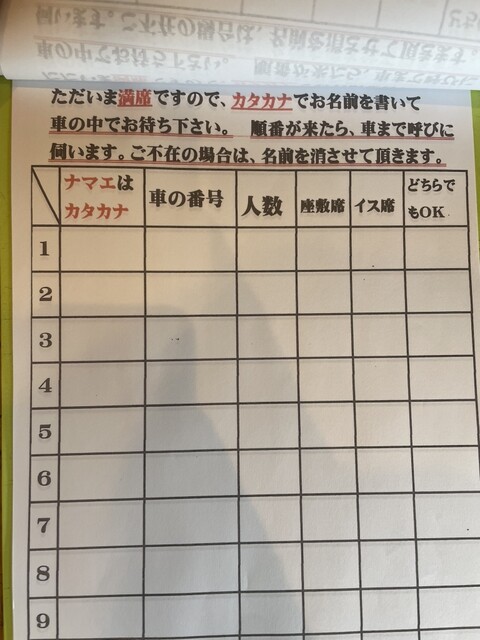 ただいま満席ですので、カタカナでお名前を書いて
車の中でお待ち下さい。 順番が来たら、車まで呼びに
伺います。ご不在の場合は、名前を消させて頂きます。
ナマエは
カタカナ
車の番号
人数
座敷席
イス席
どちらで
もOK
1
2
3
4
5
6
7
8
9